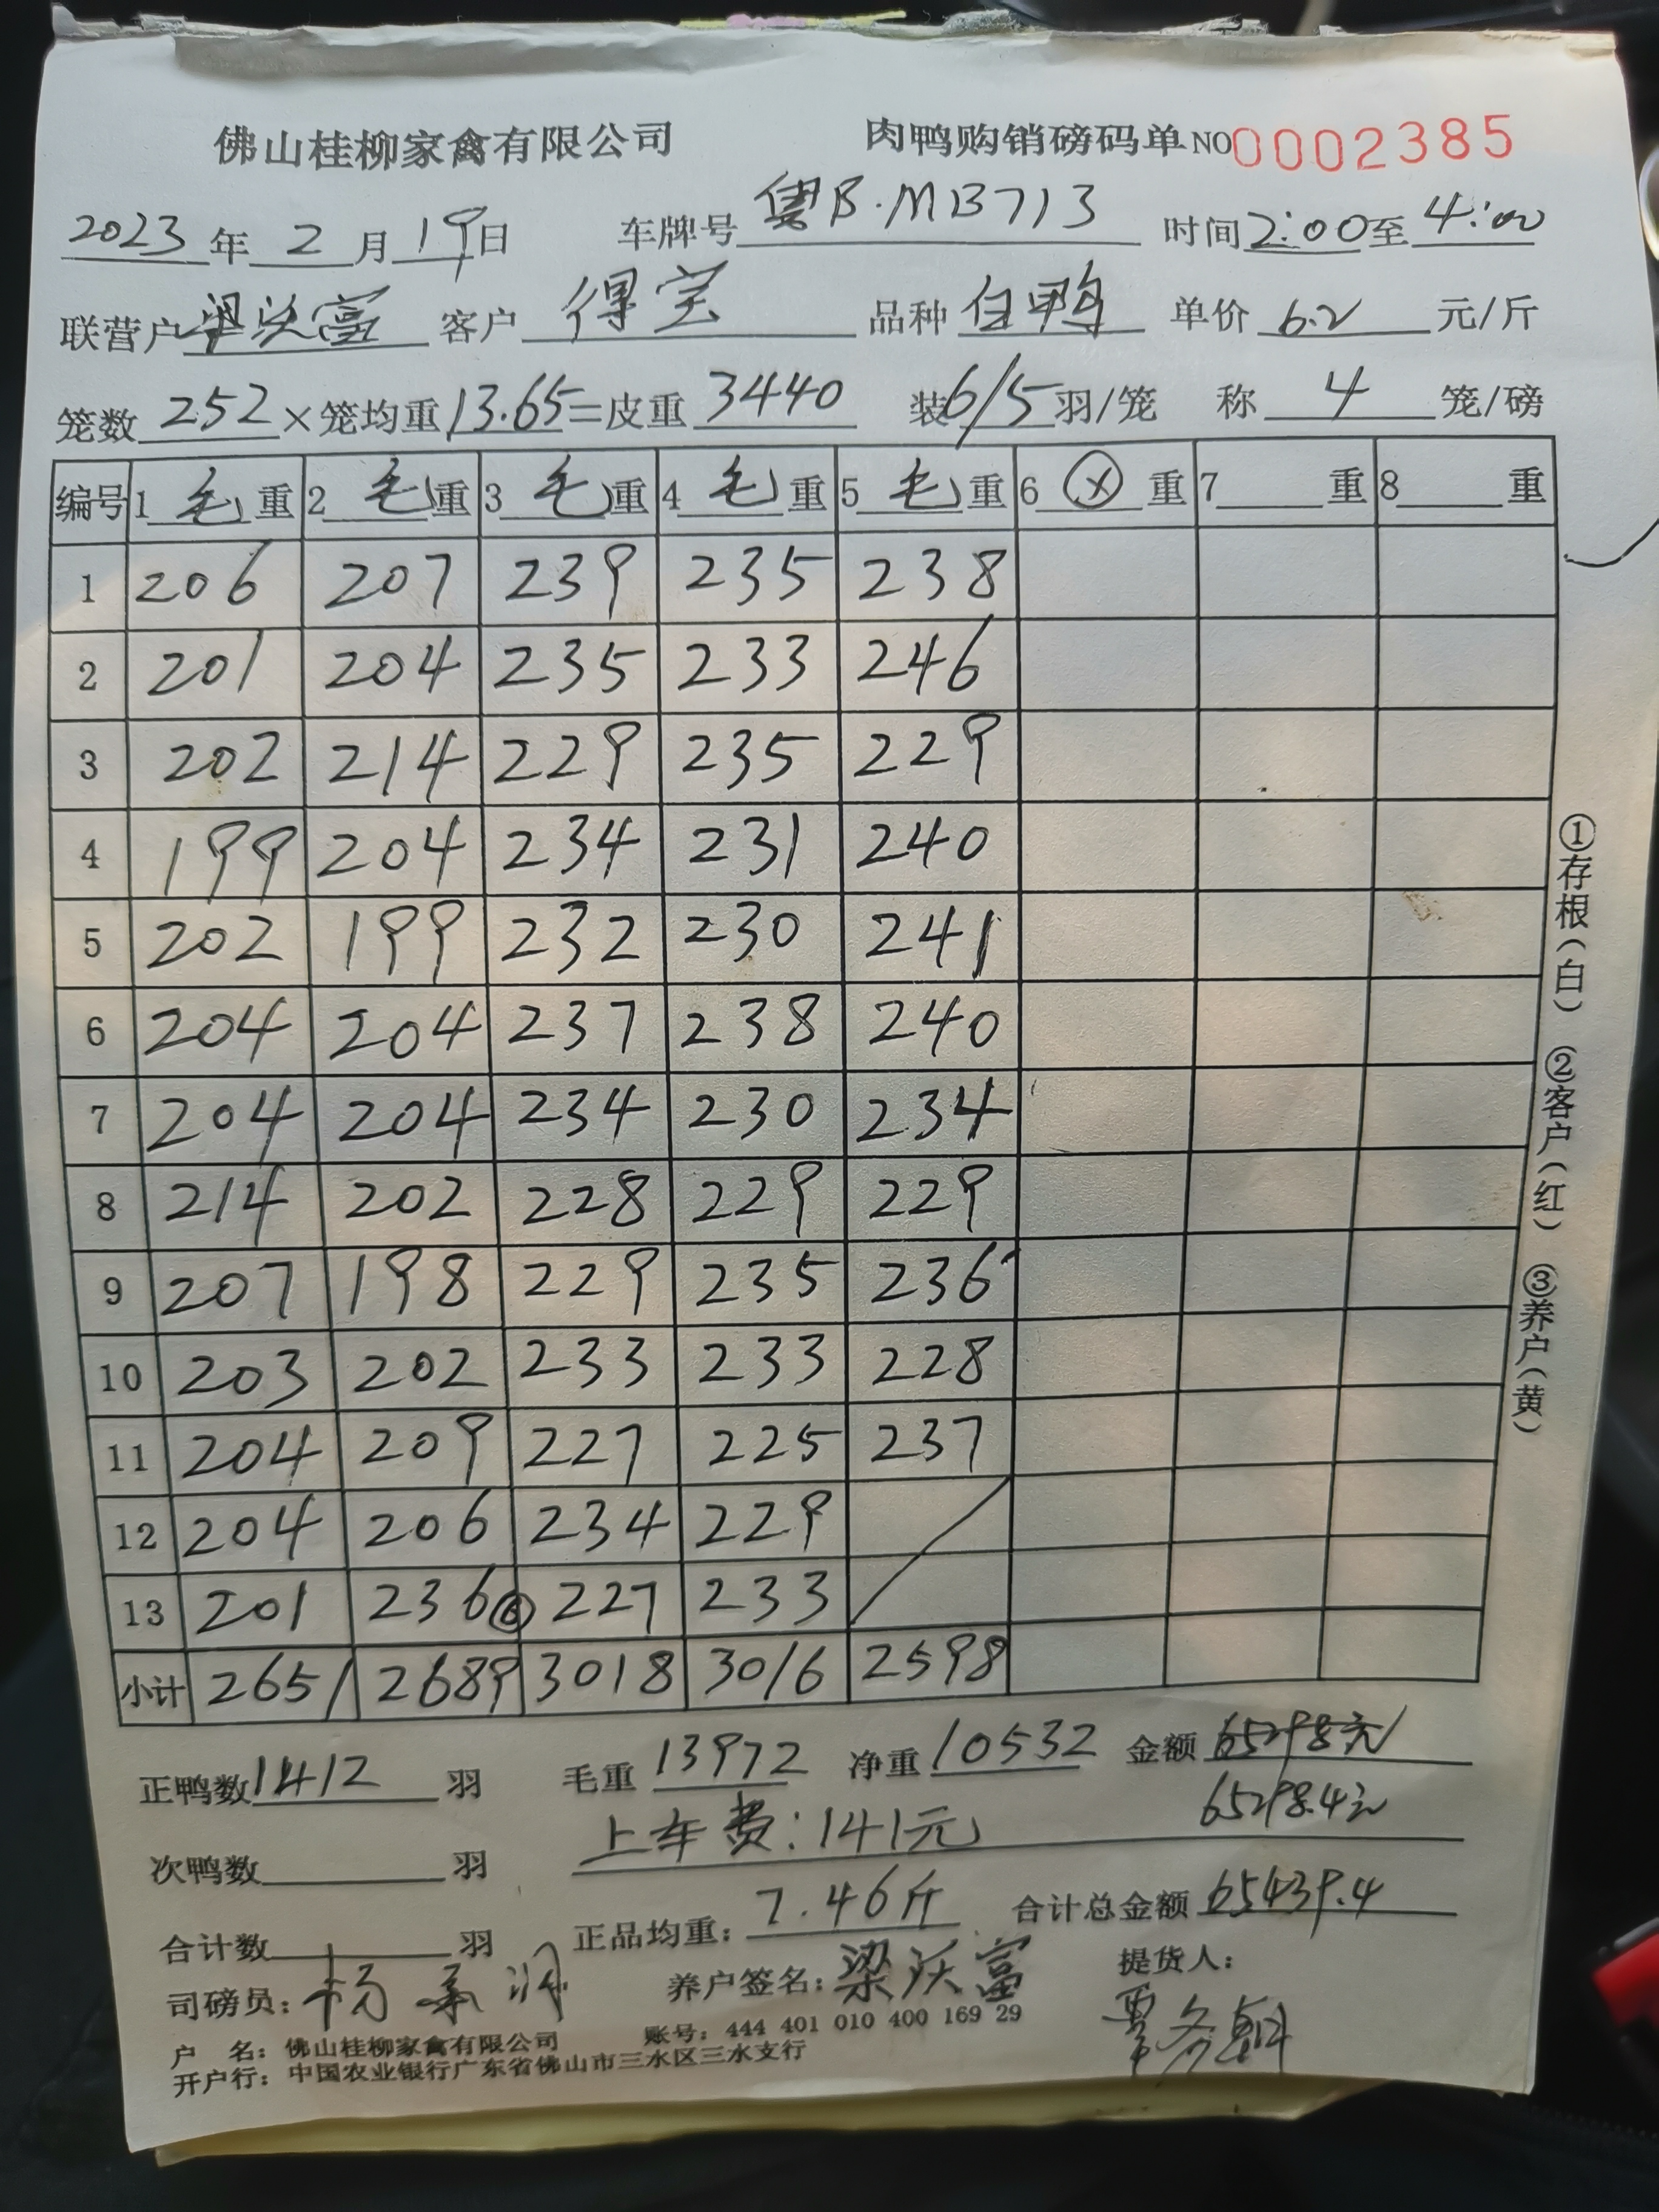 佛山桂柳家禽有限公司 肉鸭购销磅码单 NO 0002385
2023年 2 月 19日 车牌号 粤B·MB713 时间2:00至4:00
联营户 梁沃富 客户 得宝 品种 白鸭 单价 6.2 元/斤
笼数 252 ×笼均重13.65=皮重 3440 装6/5羽/笼 称 4 笼/磅
编号 1 毛 重 2 毛 重 3 毛 重 4 毛 重 5 毛 重 6 ⓧ 重 7 重 8 重
1 206 207 239 235 238
2 201 204 235 233 246
3 202 214 229 235 229
4 199 204 234 231 240
5 202 199 232 230 241
6 204 204 237 238 240
7 204 204 234 230 234
8 214 202 228 229 229
9 207 198 229 235 236
10 203 202 233 233 228
11 204 209 227 225 237
12 204 206 234 229
13 201 236⑥ 227 233
小计 2651 2689 3018 3016 2598
正鸭数 1412 羽 毛重 13972 净重 10532 金额 65298元
上车费:141元 65298.4元
次鸭数 羽
合计数 羽 正品均重: 7.46斤 合计总金额 65439.4
司磅员: 杨 养户签名: 梁沃富 提货人:
户 名: 佛山桂柳家禽有限公司 账号: 444 401 010 400 169 29
开户行: 中国农业银行广东省佛山市三水区三水支行
①存根(白) ②客户(红) ③养户(黄)